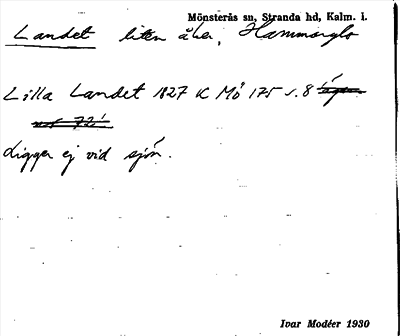 Mönsterås sn, Stranda hd, Kalm. l.
Landet liten åker, Hammarsglo
Lilla Landet 1827 K Mö 175 s. 8
Ligger ej vid sjön.
Ivar Modéer 1930